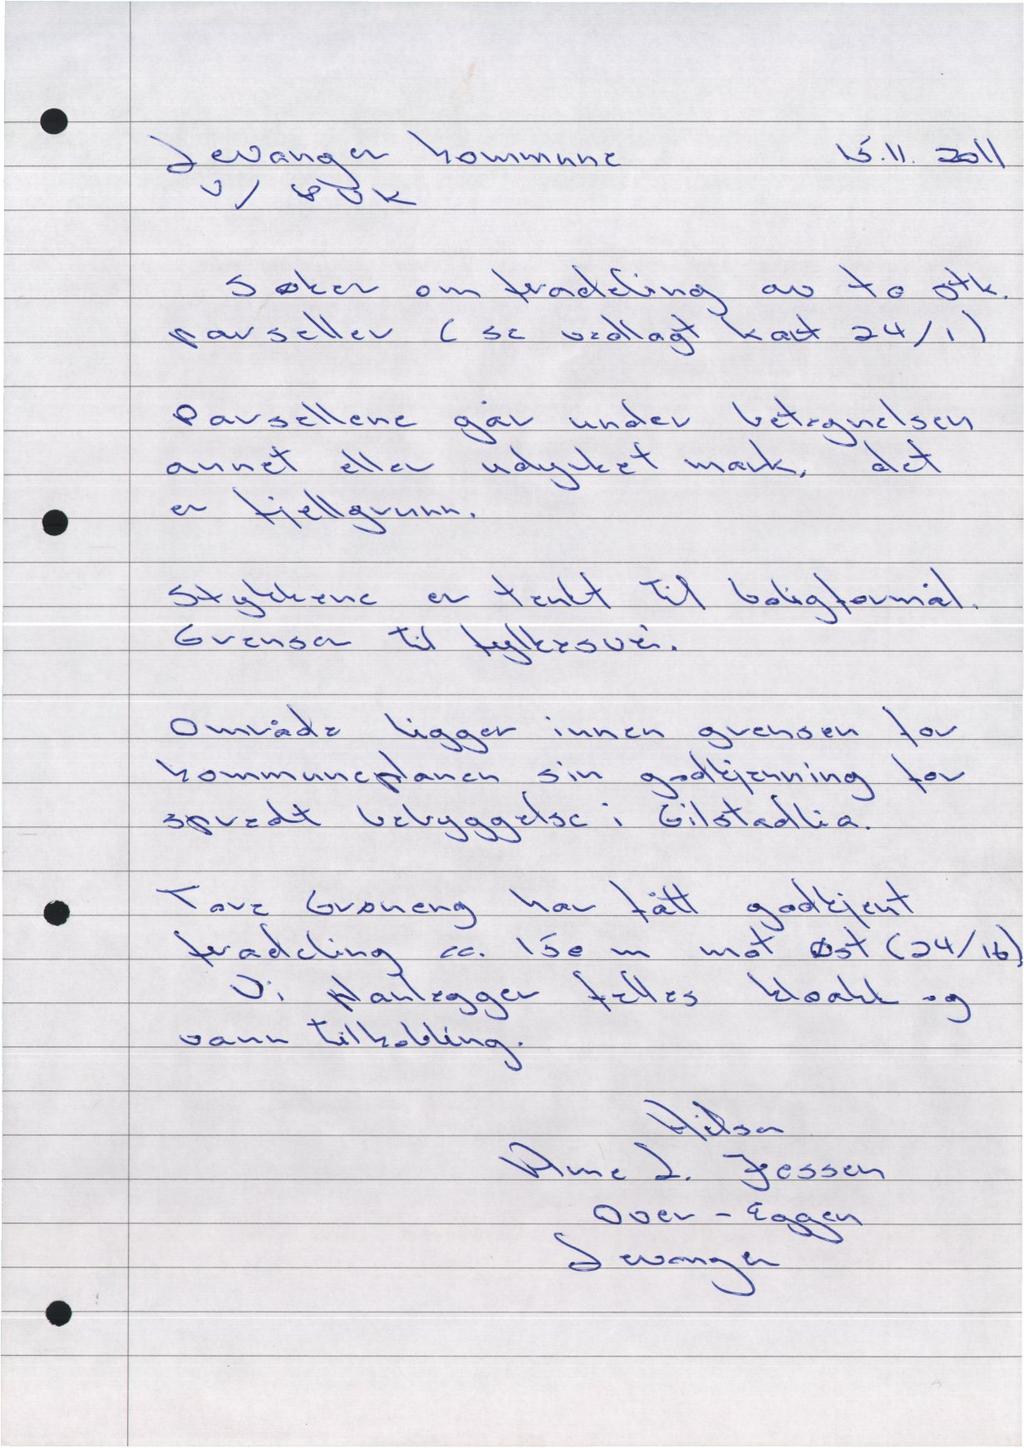 Levanger kommune 15.11. 2011
v/ BUK
Søker om fradeling av to stk.
parseller (se vedlagt kart 24/1)
Parsellene går under betegnelsen
annet eller udyrket mark, det
er fjellgrunn.
Stykkene er tenkt til boligformål.
Grenser til fylkesvei.
Område ligger innen grensen for
kommuneplanen sin godkjenning for
spredt bebyggelse i Gilstadlia.
Tore Grøneng har fått godkjent
fradeling ca. 150 m mot øst (24/16)
Vi planlegger felles kloakk og
vann tilkobling.
Hilsen
Arne L. Jessen
Over-Eggen
Levanger